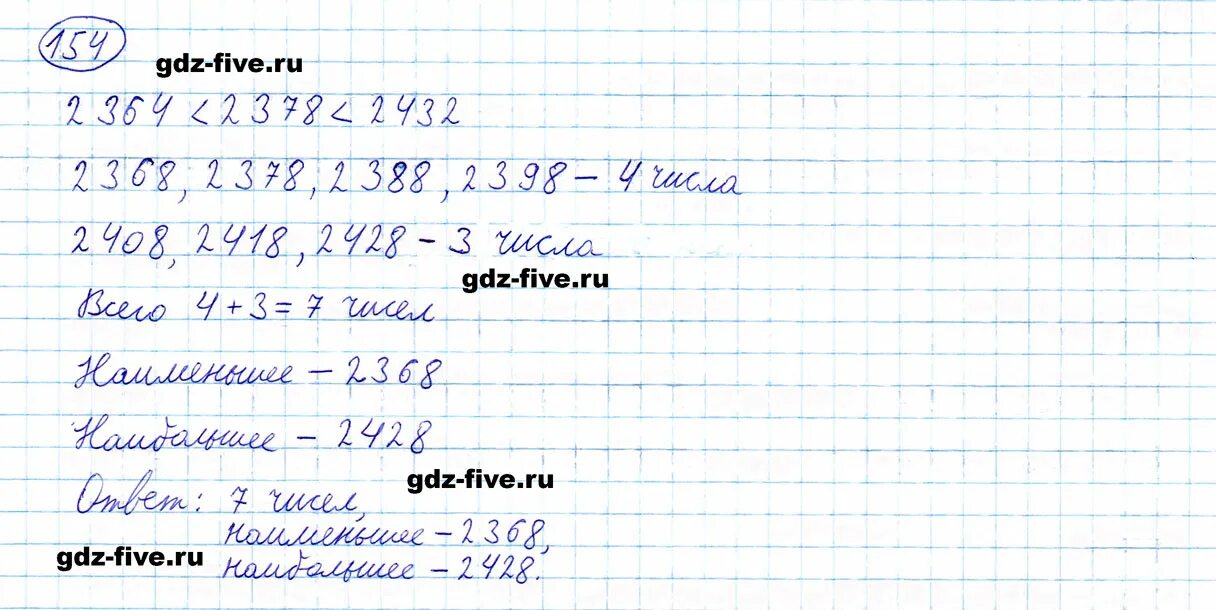 154
gdz-five.ru
2364 < 2378 < 2432
2368, 2378, 2388, 2398 – 4 числа
2408, 2418, 2428 – 3 числа
gdz-five.ru
Всего 4 + 3 = 7 чисел
Наименьшее – 2368
Наибольшее – 2428
gdz-five.ru
Ответ: 7 чисел,
наименьшее – 2368,
gdz-five.ru
наибольшее – 2428.